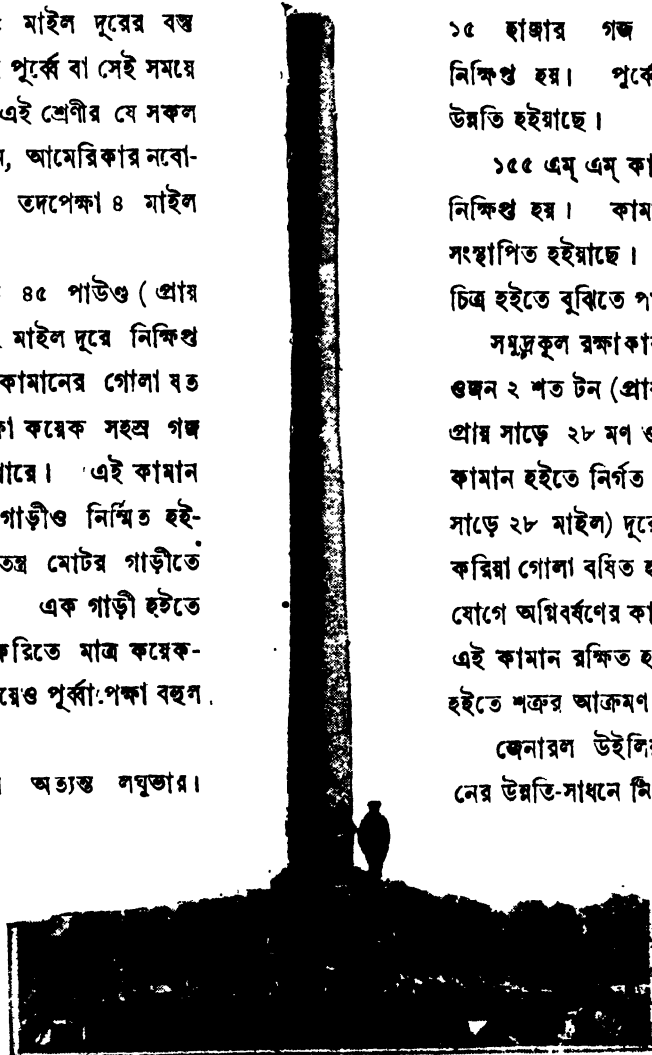 মাইল দূরের বস্তু
পূর্ব্বে বা সেই সময়ে
এই শ্রেণীর যে সকল
আমেরিকার নবো-
তদপেক্ষা ৪ মাইল
৪৫ পাউণ্ড ( প্রায়
মাইল দূরে নিক্ষিপ্ত
কামানের গোলা যত
কয়েক সহস্র গজ
এই কামান
গাড়ীও নির্ম্মিত হই-
মোটর গাড়ীতে
এক গাড়ী হইতে
করিতে মাত্র কয়েক-
পূর্ব্বাপেক্ষা বহুল
অত্যন্ত লঘুভার।
১৫ হাজার গজ
নিক্ষিপ্ত হয়। পূর্ব্বে
উন্নতি হইয়াছে।
১৫৫ এম্ এম্
নিক্ষিপ্ত হয়।
সংস্থাপিত হইয়াছে।
চিত্র হইতে বুঝিতে
সমুদ্রকূল
ওজন ২ শত টন
প্রায় সাড়ে ২৮ মণ
কামান হইতে নির্গত
সাড়ে ২৮ মাইল) দূরে
করিয়া গোলা বর্ষিত
যোগে অগ্নিবর্ষণের
এই কামান রক্ষিত
হইতে শত্রুর আক্রমণ
জেনারল
নের উন্নতি-সাধনে